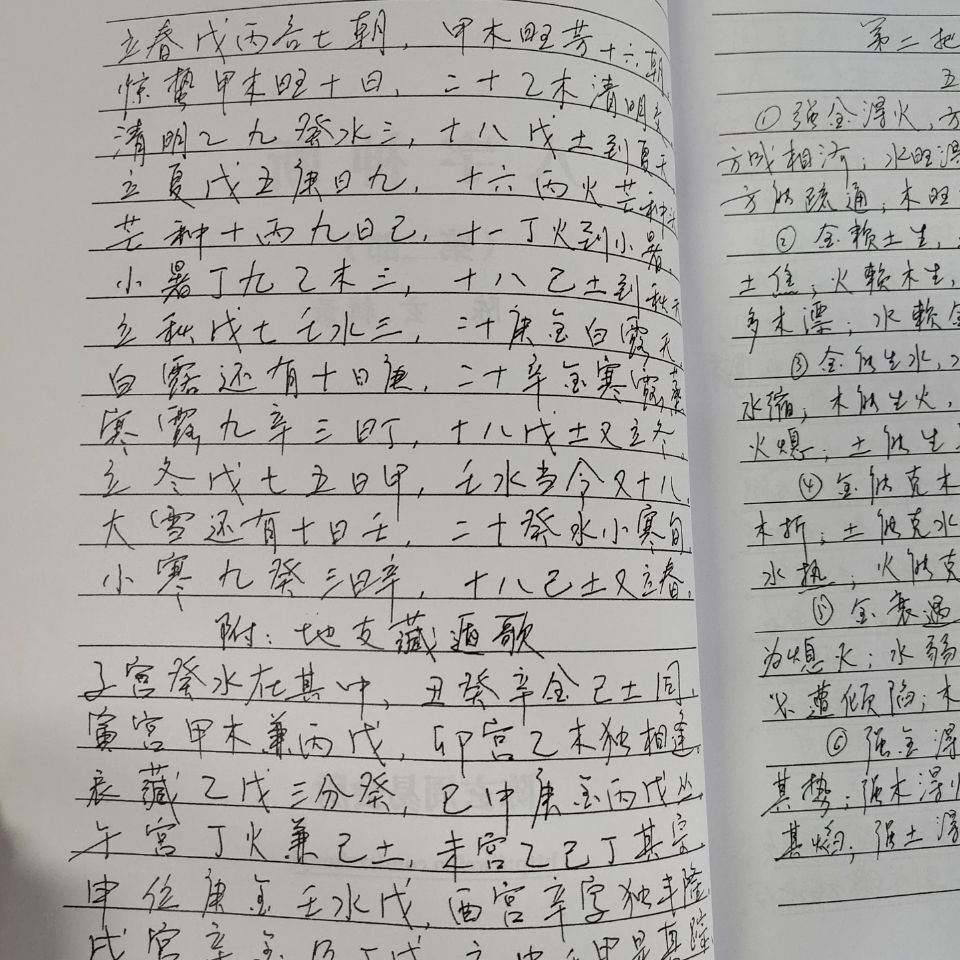 立春戊丙各七朝，甲木旺芳十六朝
惊蛰甲木旺十日，二十乙木清明
清明乙九癸水三，十八戊土到夏天
立夏戊五庚日九，十六丙火芒种
芒种十丙九日己，十一丁火到小暑，
小暑丁九乙木三，十八己土到秋天
立秋戊七壬水三，二十庚金白露天
白露还有十日庚，二十辛金寒露
寒露九辛三日丁，十八戊土又立冬，
立冬戊七五日甲，壬水当令又十八，
大雪还有十日壬，二十癸水小寒旬
小寒九癸三日辛，十八己土又立春，
附：地支藏遁歌
子宫癸水在其中，丑癸辛金己土同，
寅宫甲木兼丙戊，卯宫乙木独相逢，
辰藏乙戊三分癸，巳中庚金丙戊丛
午宫丁火兼己土，未宫乙己丁其宗
申位庚金壬水戊，酉宫辛字独丰隆
戌宫辛金及丁戊，亥中壬甲是真
第二把
五
① 强金得火，方
方成相济；水旺得
方能疏通；木旺
② 金赖土生，
土焦；火赖木生，
多木漂；水赖金
③ 金能生水，
水缩；木能生火，
火熄；土能生
④ 金能克木
木折；土能克水
水热；火能克
⑤ 金衰遇
为熄火；水弱
必遭倾陷；木
⑥ 强金得
其势；强木得
其焰；强土得